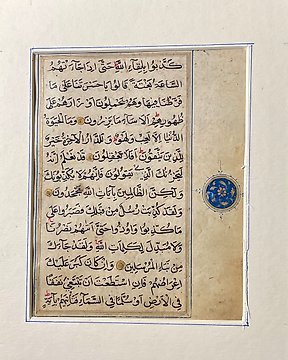 كَذَّبُوا بِلِقَاءِ اللَّهِ حَتَّى إِذَا جَاءَتْهُمُ
السَّاعَةُ بَغْتَةً قَالُوا يَا حَسْرَتَنَا عَلَى مَا
فَرَّطْنَا فِيهَا وَهُمْ يَحْمِلُونَ أَوْزَارَهُمْ عَلَى
ظُهُورِهِمْ أَلَا سَاءَ مَا يَزِرُونَ وَمَا الْحَيَوةُ
الدُّنْيَا إِلَّا لَعِبٌ وَلَهْوٌ وَلَلدَّارُ الْآخِرَةُ خَيْرٌ
لِلَّذِينَ يَتَّقُونَ أَفَلَا تَعْقِلُونَ قَدْ نَعْلَمُ إِنَّهُ
لَيَحْزُنُكَ الَّذِي يَقُولُونَ فَإِنَّهُمْ لَا يُكَذِّبُونَكَ
وَلَكِنَّ الظَّالِمِينَ بِآيَاتِ اللَّهِ يَجْحَدُونَ
وَلَقَدْ كُذِّبَتْ رُسُلٌ مِنْ قَبْلِكَ فَصَبَرُوا عَلَى
مَا كُذِّبُوا وَأُوذُوا حَتَّى أَتَاهُمْ نَصْرُنَا
وَلَا مُبَدِّلَ لِكَلِمَاتِ اللَّهِ وَلَقَدْ جَاءَكَ
مِنْ نَبَإِ الْمُرْسَلِينَ وَإِنْ كَانَ كَبُرَ عَلَيْكَ
إِعْرَاضُهُمْ فَإِنِ اسْتَطَعْتَ أَنْ تَبْتَغِيَ نَفَقًا
فِي الْأَرْضِ أَوْ سُلَّمًا فِي السَّمَاءِ فَتَأْتِيَهُمْ بِآيَةٍ